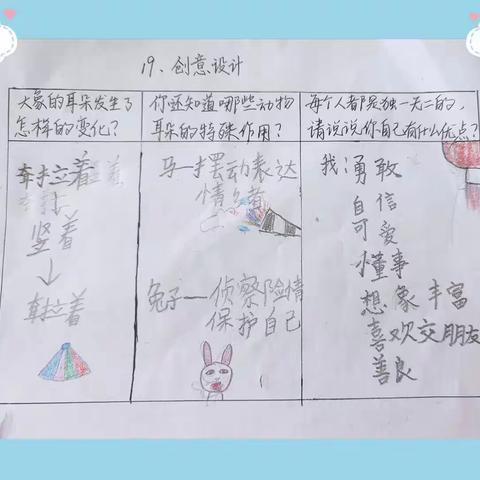 19、创意设计
大象的耳朵发生了
怎样的变化?
耷拉着
↓
竖着
↓
耷拉着
你还知道哪些动物
耳朵的特殊作用?
马—摆动表达
情绪
兔子—侦察险情
保护自己
每个人都是独一无二的,
请说说你自己有什么优点?
我:勇敢
自信
可爱
懂事
想象丰富
喜欢交朋友
善良